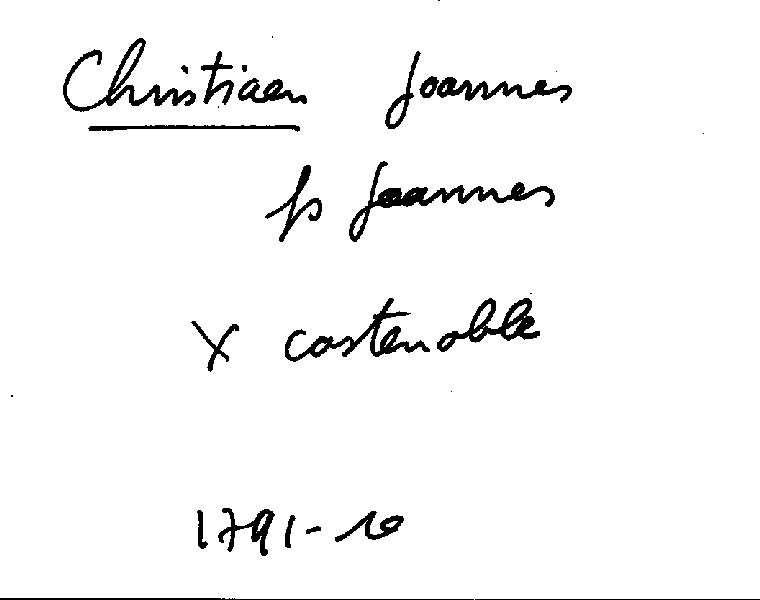 Christiaen Joannes
fs Joannes
X costenoble
1791-10